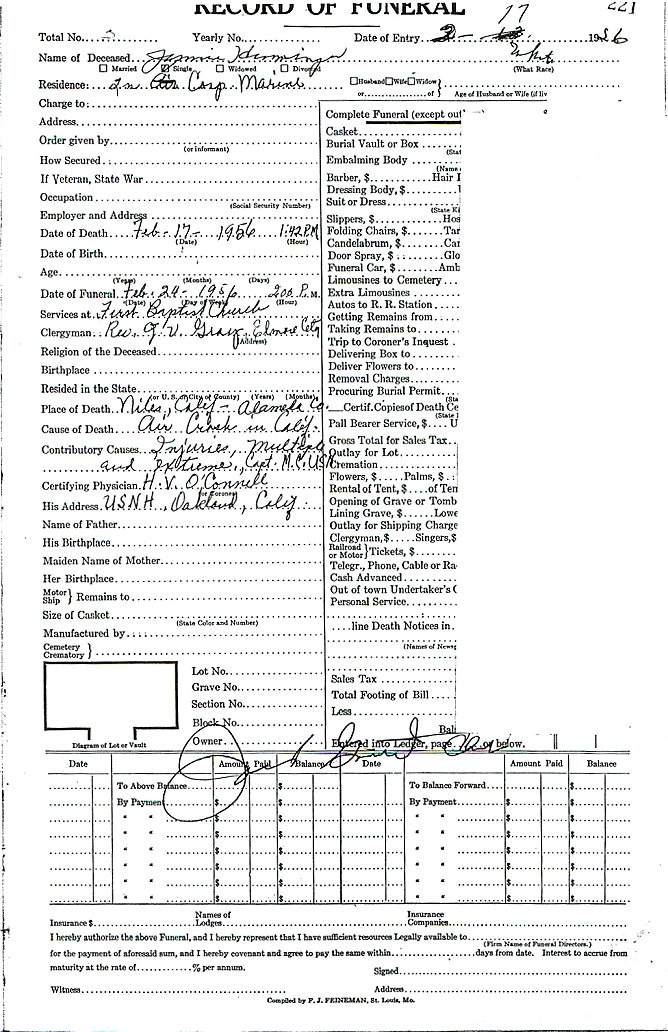 RECORD OF FUNERAL
17
221
Total No. Yearly No. Date of Entry 2- 1956
Name of Deceased Jimmie Hemmings
Married Single Widowed Divorced (What Race)
Residence: In Corp. Marine Husband Wife Widow
or of Age of Husband or Wife (if liv
Charge to:
Address
Order given by
(or informant)
How Secured
If Veteran, State War
Occupation
(Social Security Number)
Employer and Address
Date of Death Feb-17-1956 1:42 PM
(Date) (Hour)
Date of Birth
Age
(Years) (Months) (Days)
Date of Funeral Feb-24-1956 2:00 P.M.
(Date) (Day of Week) (Hour)
Services at First Baptist Church
Clergyman Rev. J. V. Gray, Elmore City
(Address)
Religion of the Deceased
Birthplace
Resided in the State
(or U. S.) (City or County) (Years) (Months)
Place of Death Niles, Calif - Alameda Co
Cause of Death Air Crash in Calif.
Contributory Causes Injuries, Multiple
and extreme, Capt. M.C. USN
Certifying Physician H. V. O'Connell
(or Coroner)
His Address USNH, Oakland, Calif
Name of Father
His Birthplace
Maiden Name of Mother
Her Birthplace
Motor Ship } Remains to
Size of Casket
(State Color and Number)
Manufactured by
Cemetery Crematory }
Lot No.
Grave No.
Section No.
Block No.
Owner
Diagram of Lot or Vault
Complete Funeral (except out
Casket
Burial Vault or Box
(Stat
Embalming Body
(Name
Barber, $ Hair
Dressing Body, $
Suit or Dress
(State Ki
Slippers, $ Hos
Folding Chairs, $ Tar
Candelabrum, $ Car
Door Spray, $ Glo
Funeral Car, $ Amb
Limousines to Cemetery
Extra Limousines
Autos to R. R. Station
Getting Remains from
Taking Remains to
Trip to Coroner's Inquest
Delivering Box to
Deliver Flowers to
Removal Charges
Procuring Burial Permit
(Sta
Certif. Copies of Death Ce
(State
Pall Bearer Service, $ U
Gross Total for Sales Tax
Outlay for Lot
Cremation
Flowers, $ Palms, $
Rental of Tent, $ of Ten
Opening of Grave or Tomb
Lining Grave, $ Lowe
Outlay for Shipping Charge
Clergyman, $ Singers, $
Railroad or Motor } Tickets, $
Telegr., Phone, Cable or Ra
Cash Advanced
Out of town Undertaker's C
Personal Service
line Death Notices in
(Names of News
Sales Tax
Total Footing of Bill
Less
Bal
Entered into Ledger, page or below.
Date Amount Paid Balance Date Amount Paid Balance
To Above Balance $ To Balance Forward $
By Payment $ $ By Payment $ $
" " $ $ " " $ $
" " $ $ " " $ $
" " $ $ " " $ $
" " $ $ " " $ $
" " $ $ " " $ $
" " $ $ " " $ $
Insurance $ Names of Lodges Insurance Companies
I hereby authorize the above Funeral, and I hereby represent that I have sufficient resources Legally available to
(Firm Name of Funeral Directors.)
for the payment of aforesaid sum, and I hereby covenant and agree to pay the same within days from date. Interest to accrue from
maturity at the rate of % per annum. Signed
Witness Address
Compiled by F. J. FEINEMAN, St. Louis, Mo.